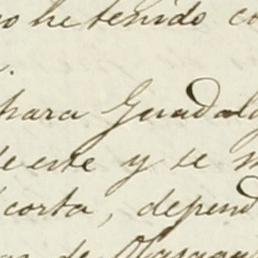 no he tenido co
para Guadal
este y se
corta, depend
de